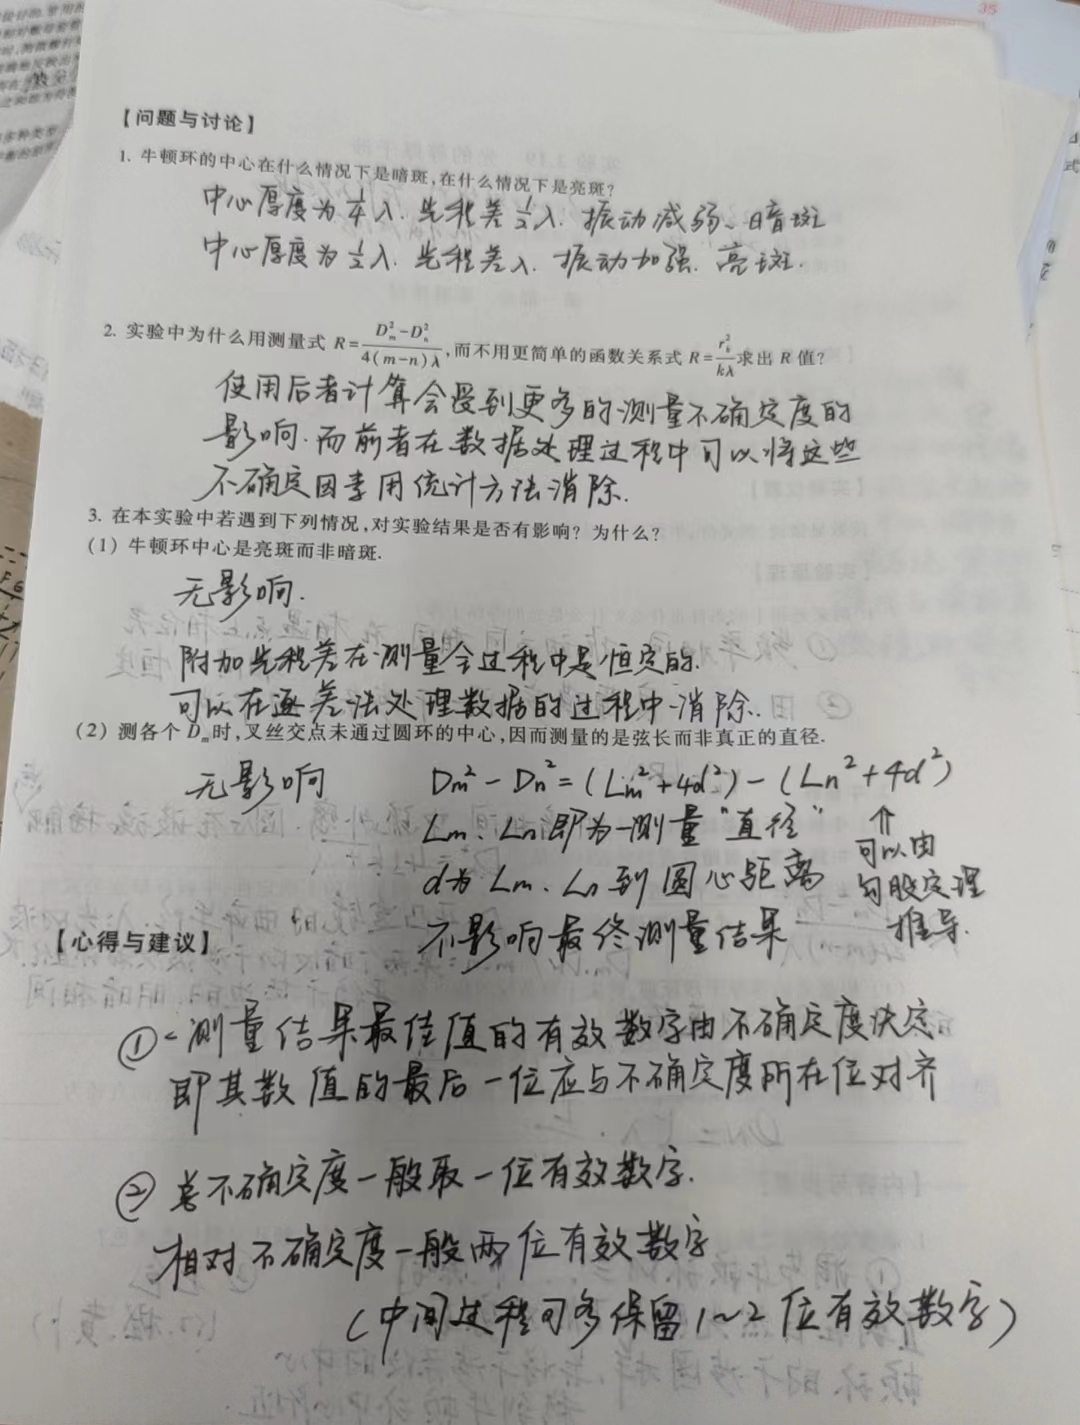 35
【问题与讨论】
1. 牛顿环的中心在什么情况下是暗斑,在什么情况下是亮斑?
中心厚度为¼λ. 光程差½λ. 振动减弱、暗斑
中心厚度为½λ. 光程差λ. 振动加强. 亮斑.
2. 实验中为什么用测量式 R=(D²m-D²n)/(4(m-n)λ),而不用更简单的函数关系式 R=r²k/kλ求出 R 值?
使用后者计算会受到更多的测量不确定度的
影响.而前者在数据处理过程中可以将这些
不确定因素用统计方法消除.
3. 在本实验中若遇到下列情况,对实验结果是否有影响? 为什么?
(1) 牛顿环中心是亮斑而非暗斑.
无影响.
附加光程差在测量全过程中是恒定的.
可以在逐差法处理数据的过程中消除..
(2) 测各个 Dm时,叉丝交点未通过圆环的中心,因而测量的是弦长而非真正的直径.
无影响 Dm²-Dn²=(Lm²+4d²)-(Ln²+4d²)
Lm、Ln即为测量"直径" ⇑
可以由
d为Lm、Ln到圆心距离 勾股定理
不影响最终测量结果 推导.
【心得与建议】
① 测量结果最佳值的有效数字由不确定度决定.
即其数值的最后一位应与不确定度所在位对齐
② 总不确定度一般取一位有效数字.
相对不确定度一般两位有效数字
(中间过程可多保留1~2位有效数字)